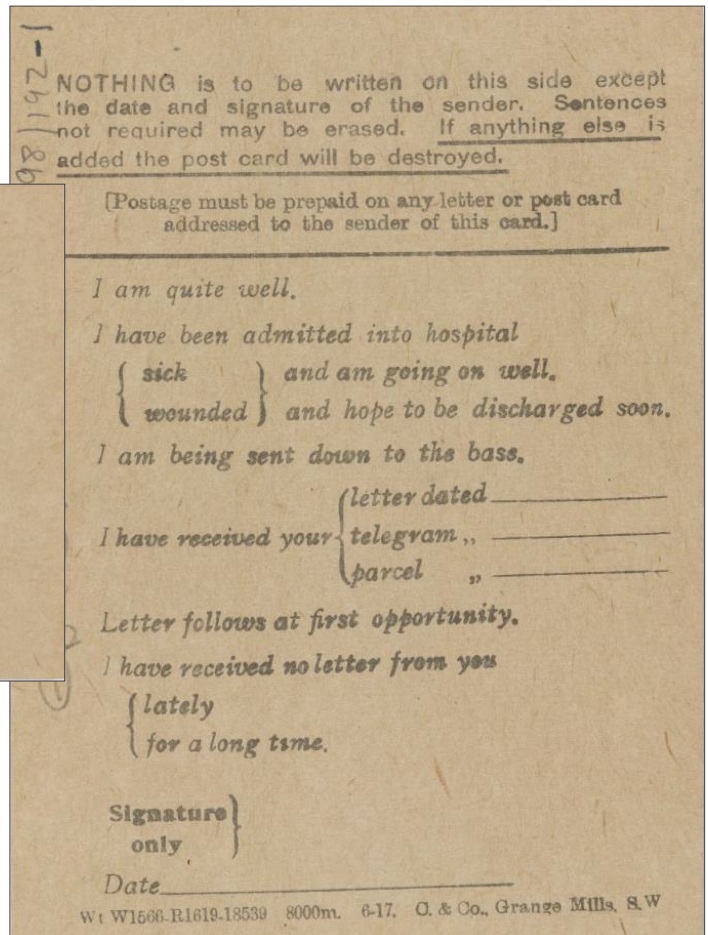 98/192-1
NOTHING is to be written on this side except
the date and signature of the sender. Sentences
not required may be erased. If anything else is
added the post card will be destroyed.
[Postage must be prepaid on any letter or post card
addressed to the sender of this card.]
I am quite well.
I have been admitted into hospital
{ sick } and am going on well.
{ wounded } and hope to be discharged soon.
I am being sent down to the bass.
{ letter dated
I have received your { telegram ,,
{ parcel ,,
Letter follows at first opportunity.
I have received no letter from you
{ lately
{ for a long time.
Signature }
only
Date
Wt W1566-R1619-18539 8000m. 6-17. C. & Co., Grange Mills, S.W